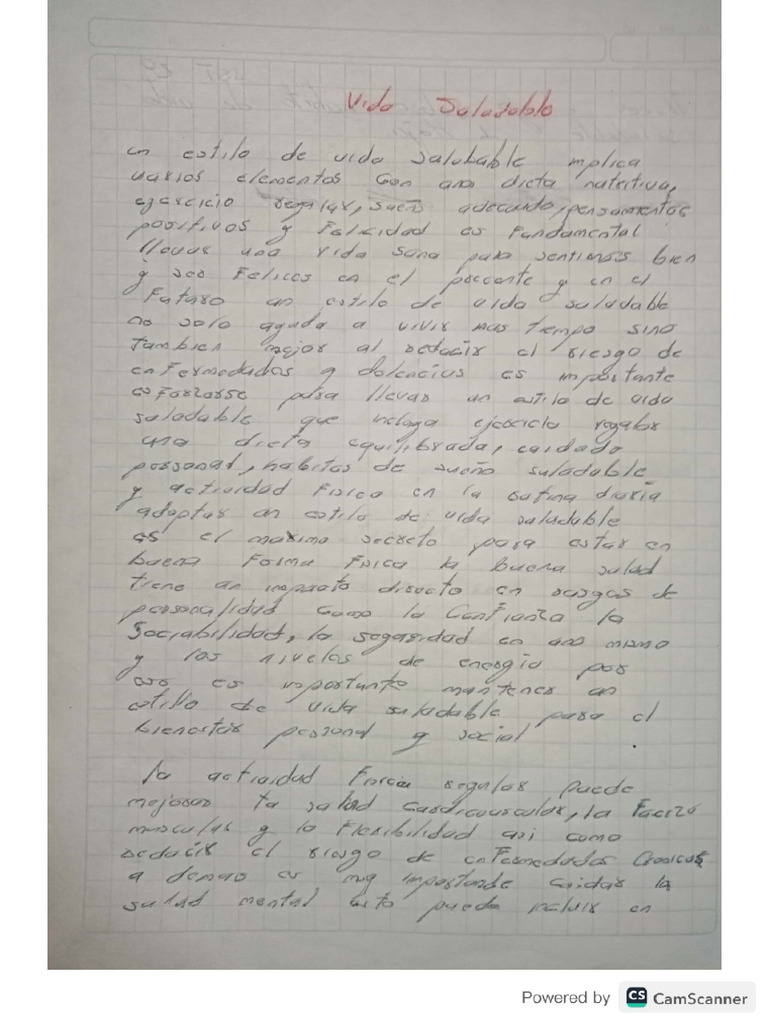 Vida Saludable
un estilo de vida salubable implica
varios elementos con una dieta nutritiva,
ejercicio regular, sueño adecuado, pensamientos
positivos y Felicidad es Fundamental
llevar una vida sana para sentirnos bien
y ser Felices en el precente y en el
Futuro un estilo de vida saludable
no solo ayuda a vivir mas tiempo sino
tambien mejor al reducir el riesgo de
enfermedades y dolencias es importante
esForzarse para llevar un estilo de vida
saludable que incluya ejercicio regular
una dieta equilibrada, cuidado
personal, habitos de sueño saludable
y actividad Fisica en la rutina diaria
adoptar un estilo de vida saludable
es el maximo secreto para estar en
buena Forma Fisica la buena salud
tiene un impacto directo en rasgos de
personalidad como la Confianza la
Sociabilidad, la seguridad en uno mismo
y los niveles de energia por
eso es importante mantener un
estilo de vida saludable para el
bienestar personal y social.
la actividad Fisica regular puede
mejorar la salud cardiovascular, la Fuerza
muscular y la Flexibilidad asi como
reducir el riesgo de enfermedades Cronicas
a demas es muy importande cuidar la
salud mental esto puede incluir en
Powered by CS CamScanner